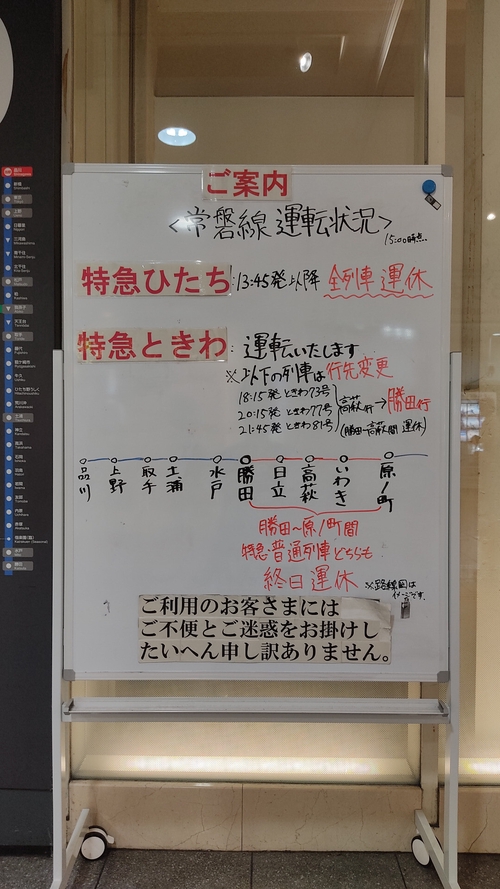 ご案内
<常磐線 運転状況>
15:00時点
特急ひたち:13:45発以降 全列車 運休
特急ときわ:運転いたします
※以下の列車は行先変更
18:15発 ときわ73号
20:15発 ときわ77号 高萩行→勝田行
21:45発 ときわ81号 (勝田-高萩間 運休)
品川 上野 取手 土浦 水戸 勝田 日立 高萩 いわき 原ノ町
勝田~原ノ町間
特急・普通列車どちらも
終日運休
※路線図は
イメージです。
ご利用のお客さまには
ご不便とご迷惑をお掛けし
たいへん申し訳ありません。